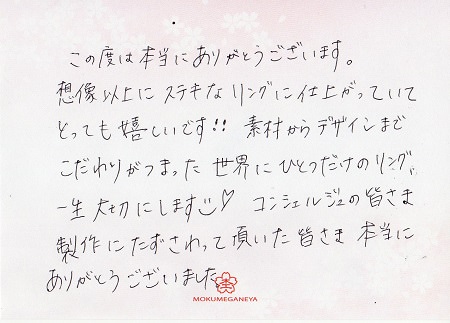 この度は本当にありがとうございます。
想像以上にステキなリングに仕上がっていて
とっても嬉しいです!! 素材からデザインまで
こだわりがつまった世界にひとつだけのリング
一生大切にします♡ コンシェルジュの皆さま
製作にたずさわって頂いた皆さま 本当に
ありがとうございました
MOKUMEGANEYA